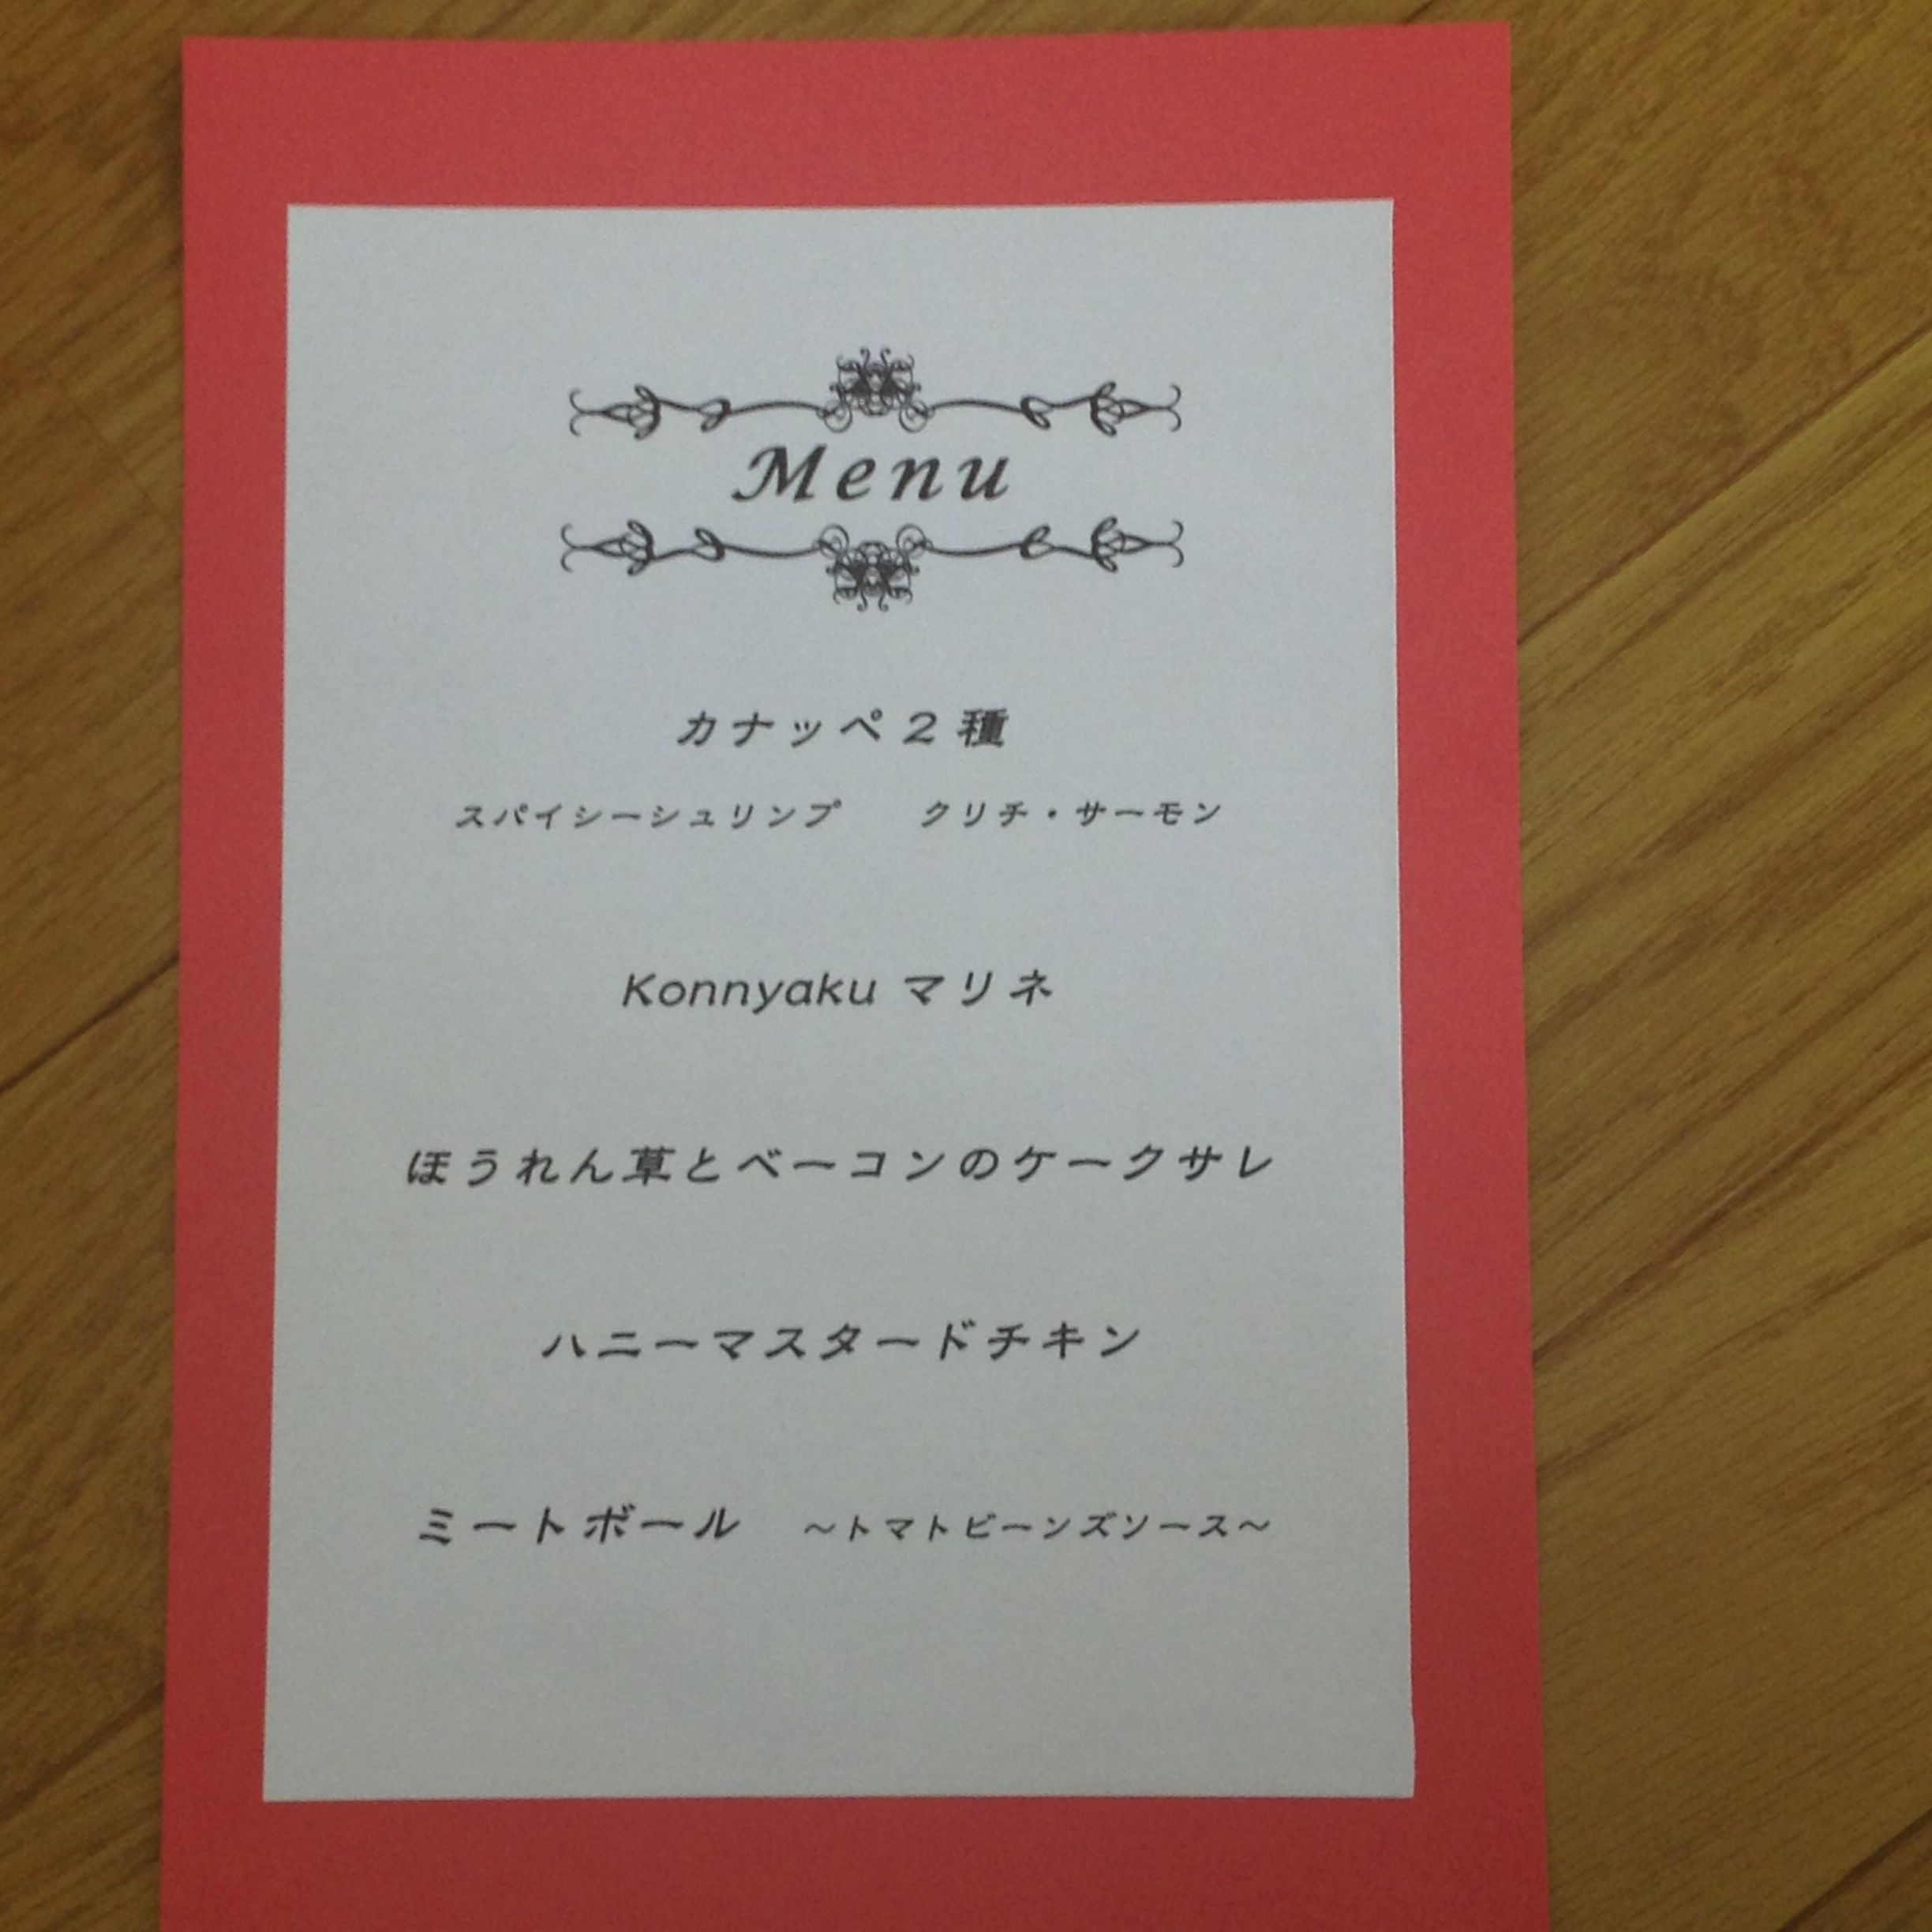 Menu
カナッペ2種
スパイシーシュリンプ　クリチ・サーモン
Konnyaku マリネ
ほうれん草とベーコンのケークサレ
ハニーマスタードチキン
ミートボール　～トマトビーンズソース～